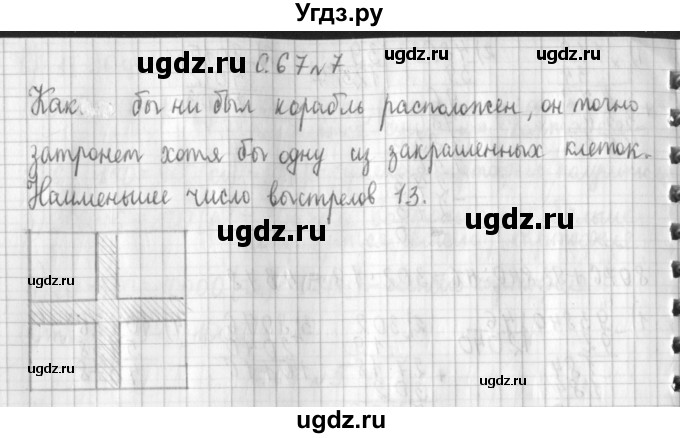 Угдз.ру
ugdz.ru С. 67 № 7 ugdz.ru
Как бы ни был корабль расположен, он точно
затронет хотя бы одну из закрашенных клеток.
Наименьшее число выстрелов 13.
ugdz.ru ugdz.ru
ugdz.ru
ugdz.ru ugdz.ru
ugdz.ru